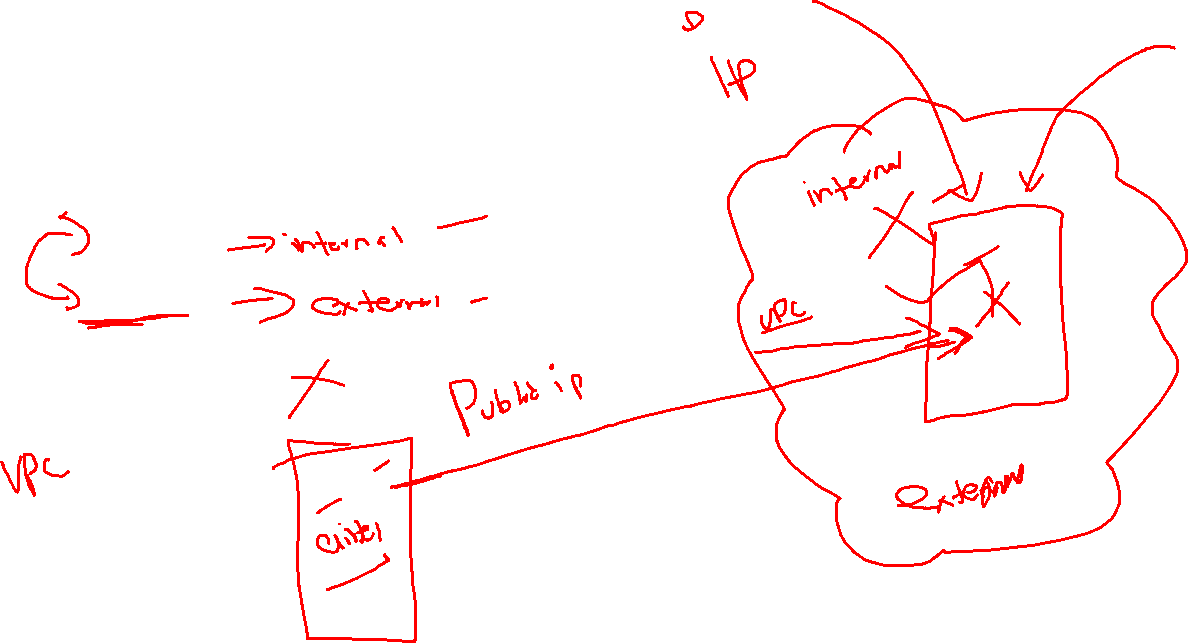 internal
internal
external
VPC
Public ip
VPC
external